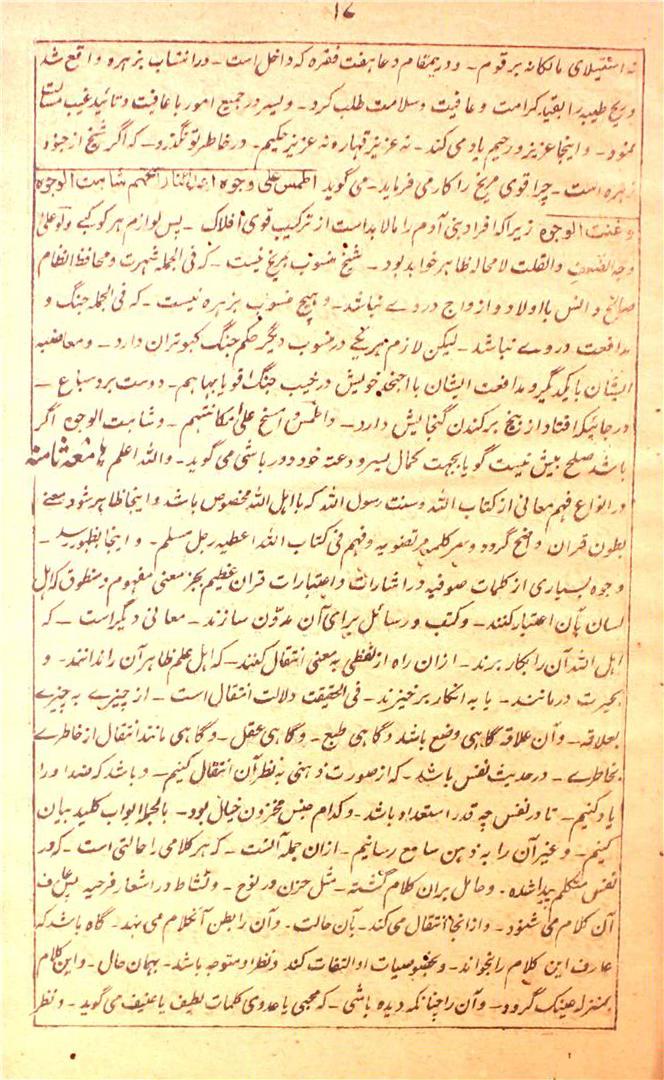 ۱۷
نه استیلای مالکانه بر قوم - و درینمقام دعا هفت فقره که داخل است - در انتساب بزهره واقع شد
و ریح طیبه را بقید کرامت و عافیت و سلامت طلب کرد - و یسر در جمیع امور با عافیت و تائید غیب مسئلت
نمود - و اینجا عزیز و رحیم یاد می کند - نه عزیز قهار و نه عزیز حکیم - در خاطر تو نگذرد - که اگر شیخ از جنود
زهره است - چرا قوی مریخ را کار می فرماید - می گوید اطمس علی وجوه اعدائنا وامسخهم شاهت الوجوه
و عنت الوجوه زیرا که افراد بنی آدم را لابد است از ترکیب قوی افلاک - پس لوازم هر کوکبے ولو علی
وجه الضعف والقلت لا محاله ظاهر خواهد بود - شیخ منسوب بمریخ نیست - که فی الجمله شهرت و محافظ انتظام
صالح و انس با اولاد و ازواج در وے نباشد - و هیچ منسوب بزهره نیست - که فی الجمله جنگ و
مدافعت در وے نباشد - لیکن لازم هر یکے در منسوب دیگر حکم جنگ کبوتران دارد - و معاضبه
ایشان با یکدیگر و مدافعت ایشان با اجنحه خویش در جنب جنگ قویا بها هم - دوست بر و سباع -
در جائیکه افتاد از بیخ برکندن گنجایش دارد - و اطمس و امسخ علی مکانتهم - و شاهت الوجوه اگر
باشد صلح بیش نیست گویا بجهت کمال یسر و دعته خود دور باشی می گوید - والله اعلم هامعه ثامنه
در انواع فهم معانی از کتاب الله و سنت رسول الله که با اهل الله مخصوص باشد و اینجا ظاهر شود معنے
بطون قرآن واضح گردد و سر کلمه مرتضویه و فهم فی کتاب الله اعطیه رجل مسلم - و اینجا بظهور رسد -
وجوه بسیاری از کلمات صوفیه در اشارات و اعتبارات قرآن عظیم بجز معنی مفهوم و منطوق که اهل
لسان بآن اعتبار کنند - و کتب و رسائل برای آن مدون سازند - معانی دیگر است - که
اهل الله آن را بکار برند - ازان راه از لفظی به معنی انتقال کنند - که اهل علم ظاهر آن را ندانند - و
بحیرت در مانند - یا به انکار برخیزند - فی الحقیقت دلالت انتقال است - از چیزے به چیزے
بعلاقه - و آن علاقه گاهی وضع باشد و گاهی طبع - و گاهی عقل - و گاهی مانند انتقال از خاطرے
بخاطرے - در حدیث نفس باشد - که از صورت ذهنی به نظر آن انتقال کنیم - و باشد که ضد او را
یاد کنیم - تا در نفس چه قدر استعداد باشد - و کدام جنس مخزون خیال بود - بالجمله ابواب کلید بیان
کنیم - و غیر آن را به ذهن سامع رسانیم - ازان جمله آنست - که هر کلامی را حالتی است - که در
نفس متکلم پیدا شده - و حامل بران کلام گشته - مثل حزن در نوح - و نشاط در اشعار فرحیه پس عارف
آن کلام می شنود - و از انجا انتقال می کند - بآن حالت - و آن را بطن آنکلام می نهد - گاه باشد که
عارف این کلام را بخواند - و بخصوصیات او التفات کند و نظر او متوجه باشد - بهمان حال - و این کلام
بمنزله عینک گردد - و آن را چنانکه دیده باشی - که محبی یا عدوی کلمات لطیف یا عنیف می گوید - و نظر